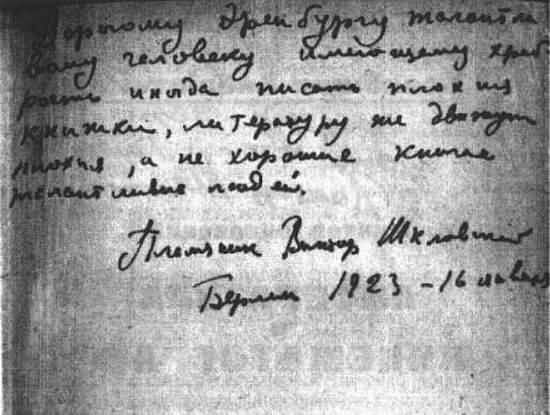 Дорогому Эренбургу талантли
вому человеку имеющему храб
рость иногда писать плохия
книжки, литературу же движут
плохия, а не хорошие книги
талантливые людей.
Племянник Виктор Шкловский
Берлин 1923 – 16 января